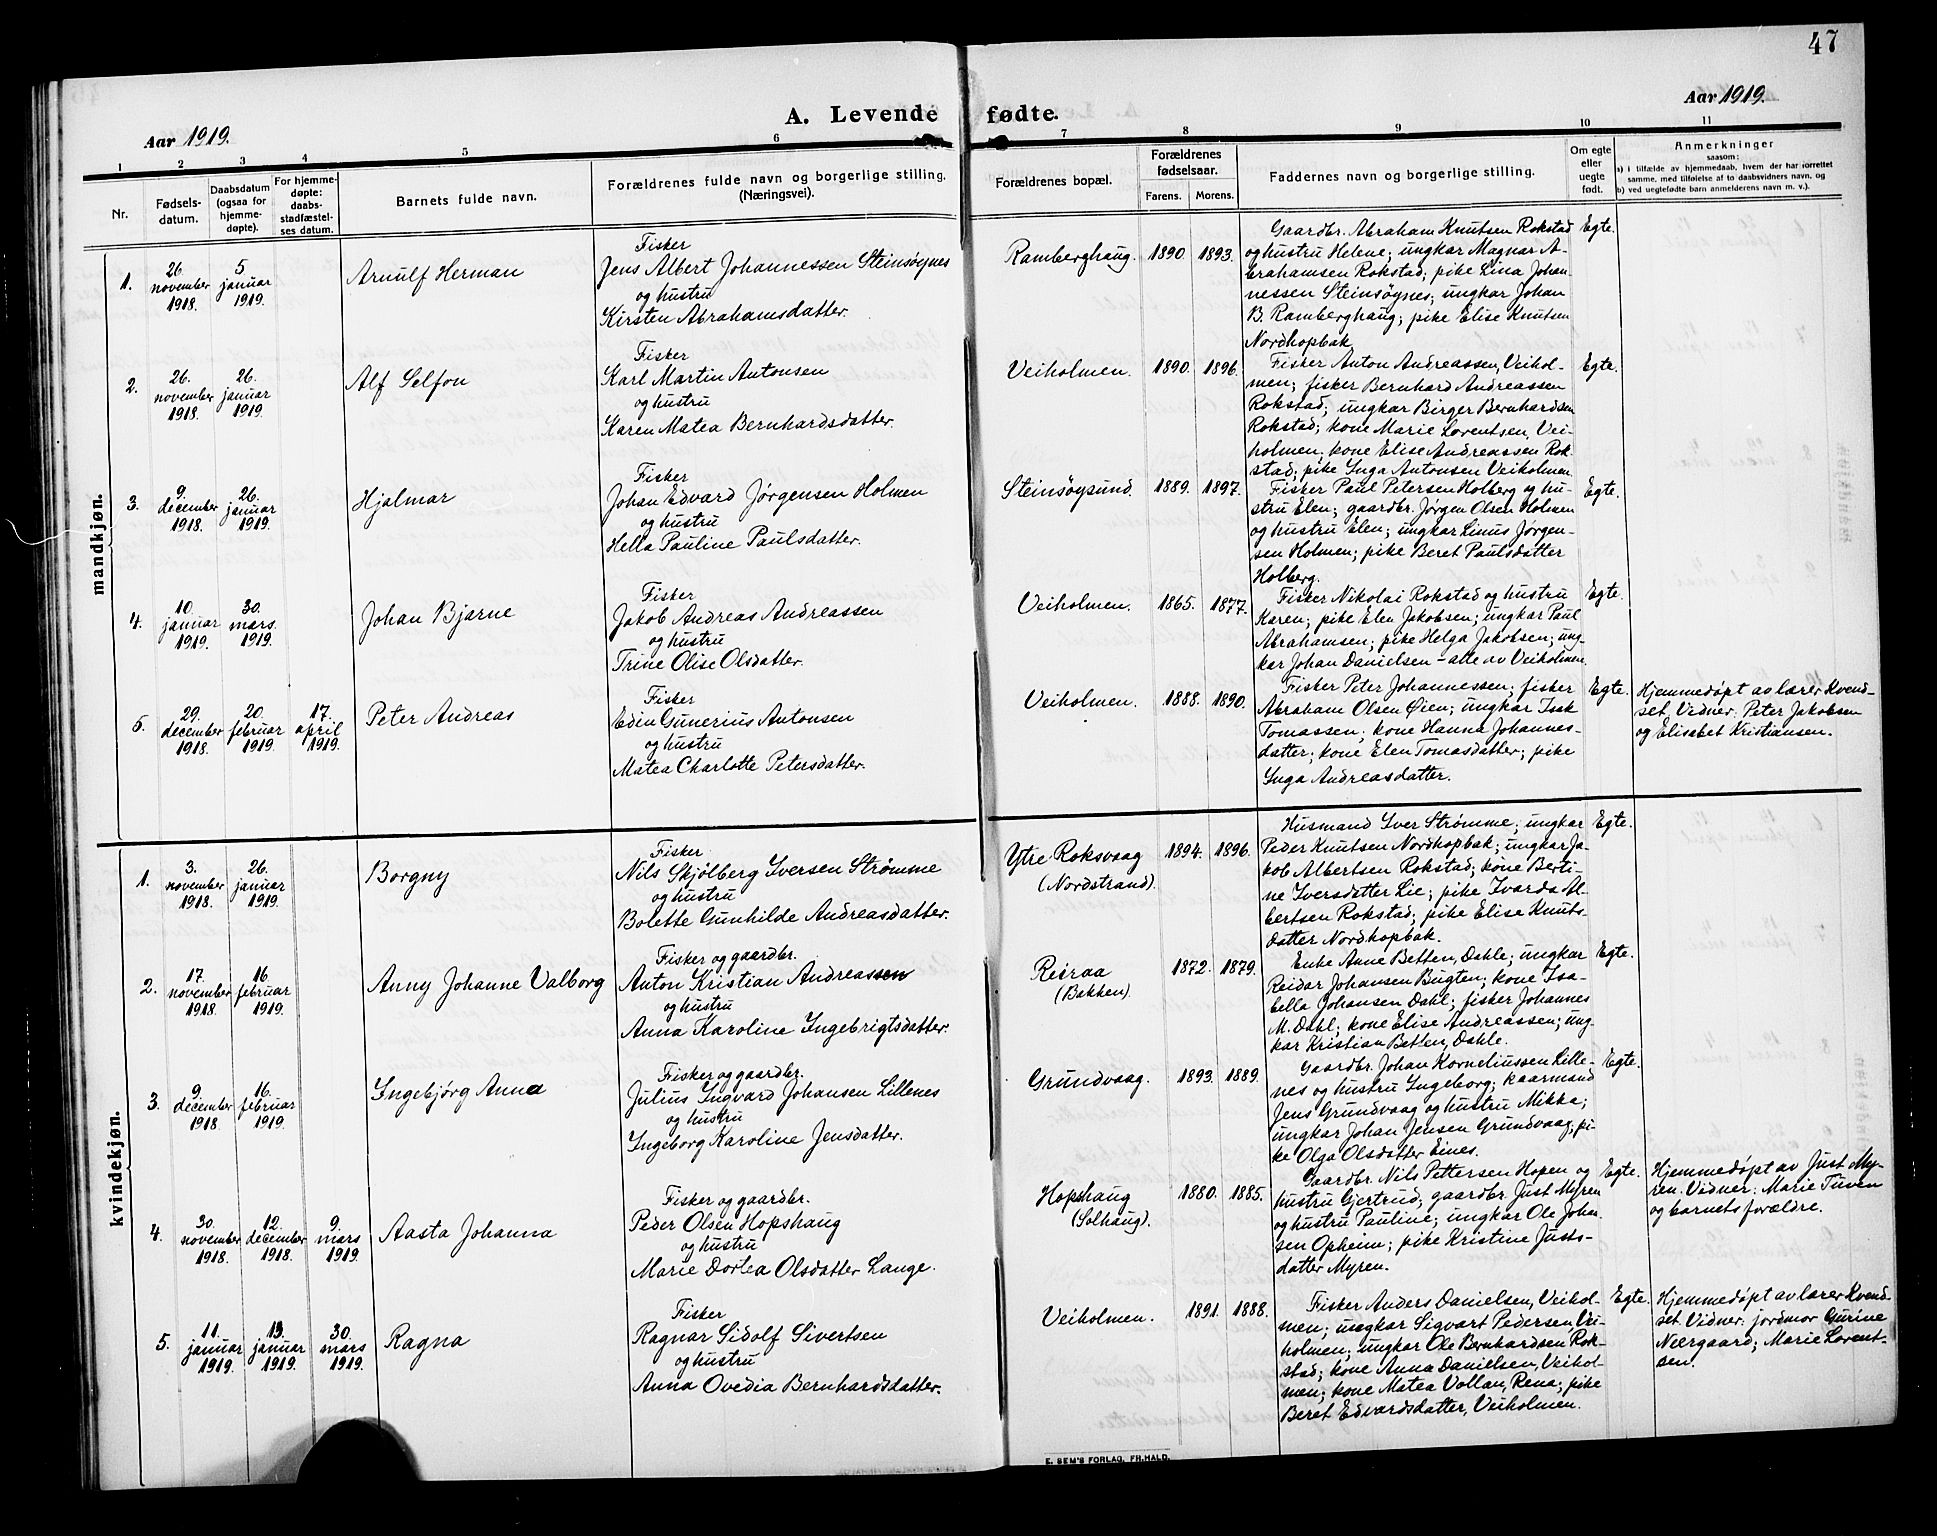 47
A. Levende fødte.
Aar 1919.
Aar 1919.
1
2
3
4
5
6
7
8
9
10
11
Nr.
Fødsels-
datum.
Daabsdatum
(ogsaa for
hjemme-
døpte).
For hjemme-
døpte:
daabs-
stadfæstel-
ses datum.
Barnets fulde navn.
Forældrenes fulde navn og borgerlige stilling.
(Næringsvei).
Forældrenes bopæl.
Forældrenes
fødselsaar.
Farens.
Morens.
Faddernes navn og borgerlige stilling.
Om egte
eller
uegte
født.
Anmerkninger
saasom:
a) i tilfælde av hjemmedaab, hvem der har forrettet
samme, med tilføielse af to daabsvidners navn, og
b) ved uegtefødte barn anmelderens navn m. v.).
mandkjøn.
1.
26.
november
1918.
5
januar
1919.
Arnulf Herman
Fisker
Jens Albert Johannessen Steinsøynes
og hustru
Kirsten Abrahamsdatter.
Ramberghaug.
1890.
1893.
Gaardbr. Abraham Knutsen Rokstad
og hustru Helene; ungkar Magnar A-
brahamsen Rokstad; pike Lina Johan
nessen Steinsøynes; ungkar Johan
B. Ramberghaug; pike Elise Knutsen
Nordhopbak.
Egte.
2.
26.
november
1918.
26.
januar
1919.
Alf Selfon
Fisker
Karl Martin Antonsen
og hustru
Karen Matea Bernhardsdatter.
Veiholmen.
1890.
1896.
Fisker Anton Andreassen, Veihol-
men; fisker Bernhard Andreassen
Rokstad; ungkar Birger Bernhardsen
Rokstad; kone Marie Lorentsen, Vei-
holmen, kone Elise Andreassen Rok-
stad; pike Inga Antonsen Veiholmen.
Egte.
3.
9.
december
1918.
26.
januar
1919.
Hjalmar
Fisker
Johan Edvard Jørgensen Holmen
og hustru
Hella Pauline Paulsdatter.
Steinsøysund.
1889.
1897.
Fisker Paul Petersen Holberg og hu-
stru Elen; gaardbr. Jørgen Olsen Holmen
og hustru Elen; ungkar Linus Jørgen-
sen Holmen; pike Beret Paulsdatter
Holberg.
Egte.
4.
10.
januar
1919.
30.
mars.
1919.
Johan Bjarne
Fisker
Jakob Andreas Andreassen
og hustru
Trine Olise Olsdatter.
Veiholmen.
1865.
1877.
Fisker Nikolai Rokstad og hustru
Karen; pike Elen Jakobsen; ungkar Paul
Abrahamsen; pike Helga Jakobsen; ung-
kar Johan Danielsen - alle av Veiholmen.
Egte.
5.
29.
december
1918.
20.
februar
1919.
17.
april
1919.
Peter Andreas
Fisker
Edin Gunerius Antonsen
og hustru
Matea Charlotte Petersdatter.
Veiholmen.
1888.
1890.
Fisker Peter Johannessen; fisker
Abraham Olsen Øien; ungkar Isak
Tomassen; kone Hanna Johannes-
datter; kone Elen Tomasdatter; pike
Inga Andreasdatter.
Egte.
Hjemmedøpt av lærer Kvend-
set. Vidner: Peter Jakobsen
og Elisabet Kristiansen.
kvindekjøn.
1.
3.
november
1918.
26.
januar
1919.
Borgny
Fisker
Nils Skjølberg Iversen Strømme
og hustru
Bolette Gunhilde Andreasdatter.
Ytre Roksvaag
(Nordstrand).
1894.
1896.
Husmand Iver Strømme; ungkar
Peder Knutsen Nordhopbak; ungkar Ja-
kob Albertsen Rokstad; kone Berti-
ne Iversdatter Lie; pike Ivarda Al-
bertsen Rokstad; pike Elise Knuts-
datter Nordhopbak.
Egte.
2.
17.
november
1918.
16.
februar
1919.
Anny Johanne Valborg
Fisker og gaardbr.
Anton Kristian Andreassen
og hustru
Anna Karoline Ingebrigtsdatter.
Reiraa
(Bakken).
1872.
1879.
Enke Anne Betten, Dahle; ungkar
Reidar Johansen Bugten; kone Isa-
bella Johansen Dahl; fisker Johannes
M. Dahl; kone Elise Andreassen; ung-
kar Kristian Betten, Dahle.
Egte.
3.
9.
december
1918.
16.
februar
1919.
Ingebjørg Anna
Fisker og gaardbr.
Julius Ingvard Johansen Lillenes
og hustru
Ingeborg Karoline Jensdatter.
Grundvaag.
1893.
1889.
Gaardbr. Johan Korneliussen Lille-
nes og hustru Ingeborg; kaarmand
Jens Grundvaag og hustru Mikka;
ungkar Johan Jensen Grundvaag; pi-
ke Olga Olsdatter Eines.
Egte.
4.
30.
november
1918.
12.
december
1918.
9.
mars
1919.
Aasta Johanna
Fisker og gaardbr.
Peder Olsen Hopshaug
og hustru
Marie Dortea Olsdatter Lange.
Hopshaug
(Solhaug).
1880.
1885.
Gaardbr. Nils Pettersen Hopen og
hustru Gjertrud; gaardbr. Just Myren
og hustru Pauline; ungkar Ole Johan
sen Opheim; pike Kristine Justs-
datter Myren.
Egte.
Hjemmedøpt av Just My-
ren. Vidner: Marie Tuven
og barnets forældre.
5.
11.
januar
1919.
13.
januar
1919.
30.
mars
1919.
Ragna
Fisker
Ragnar Sidolf Sivertsen
og hustru
Anna Ovedia Bernhardsdatter.
Veiholmen.
1891.
1888.
Fisker Anders Danielsen, Veihol-
men; ungkar Sigvart Pedersen Vei-
holmen; ungkar Ole Bernhardsen Rok-
stad; kone Anna Danielsen, Veihol-
men; kone Matea Vollan, Rena; pike
Beret Edvardsdatter, Veiholmen.
Egte.
Hjemmedøpt av lærer Kvend-
set. Vidner: jordmor Gurine
Neergaard; Marie Lorent-
sen.
E. SEM'S FORLAG, FR.HALD.